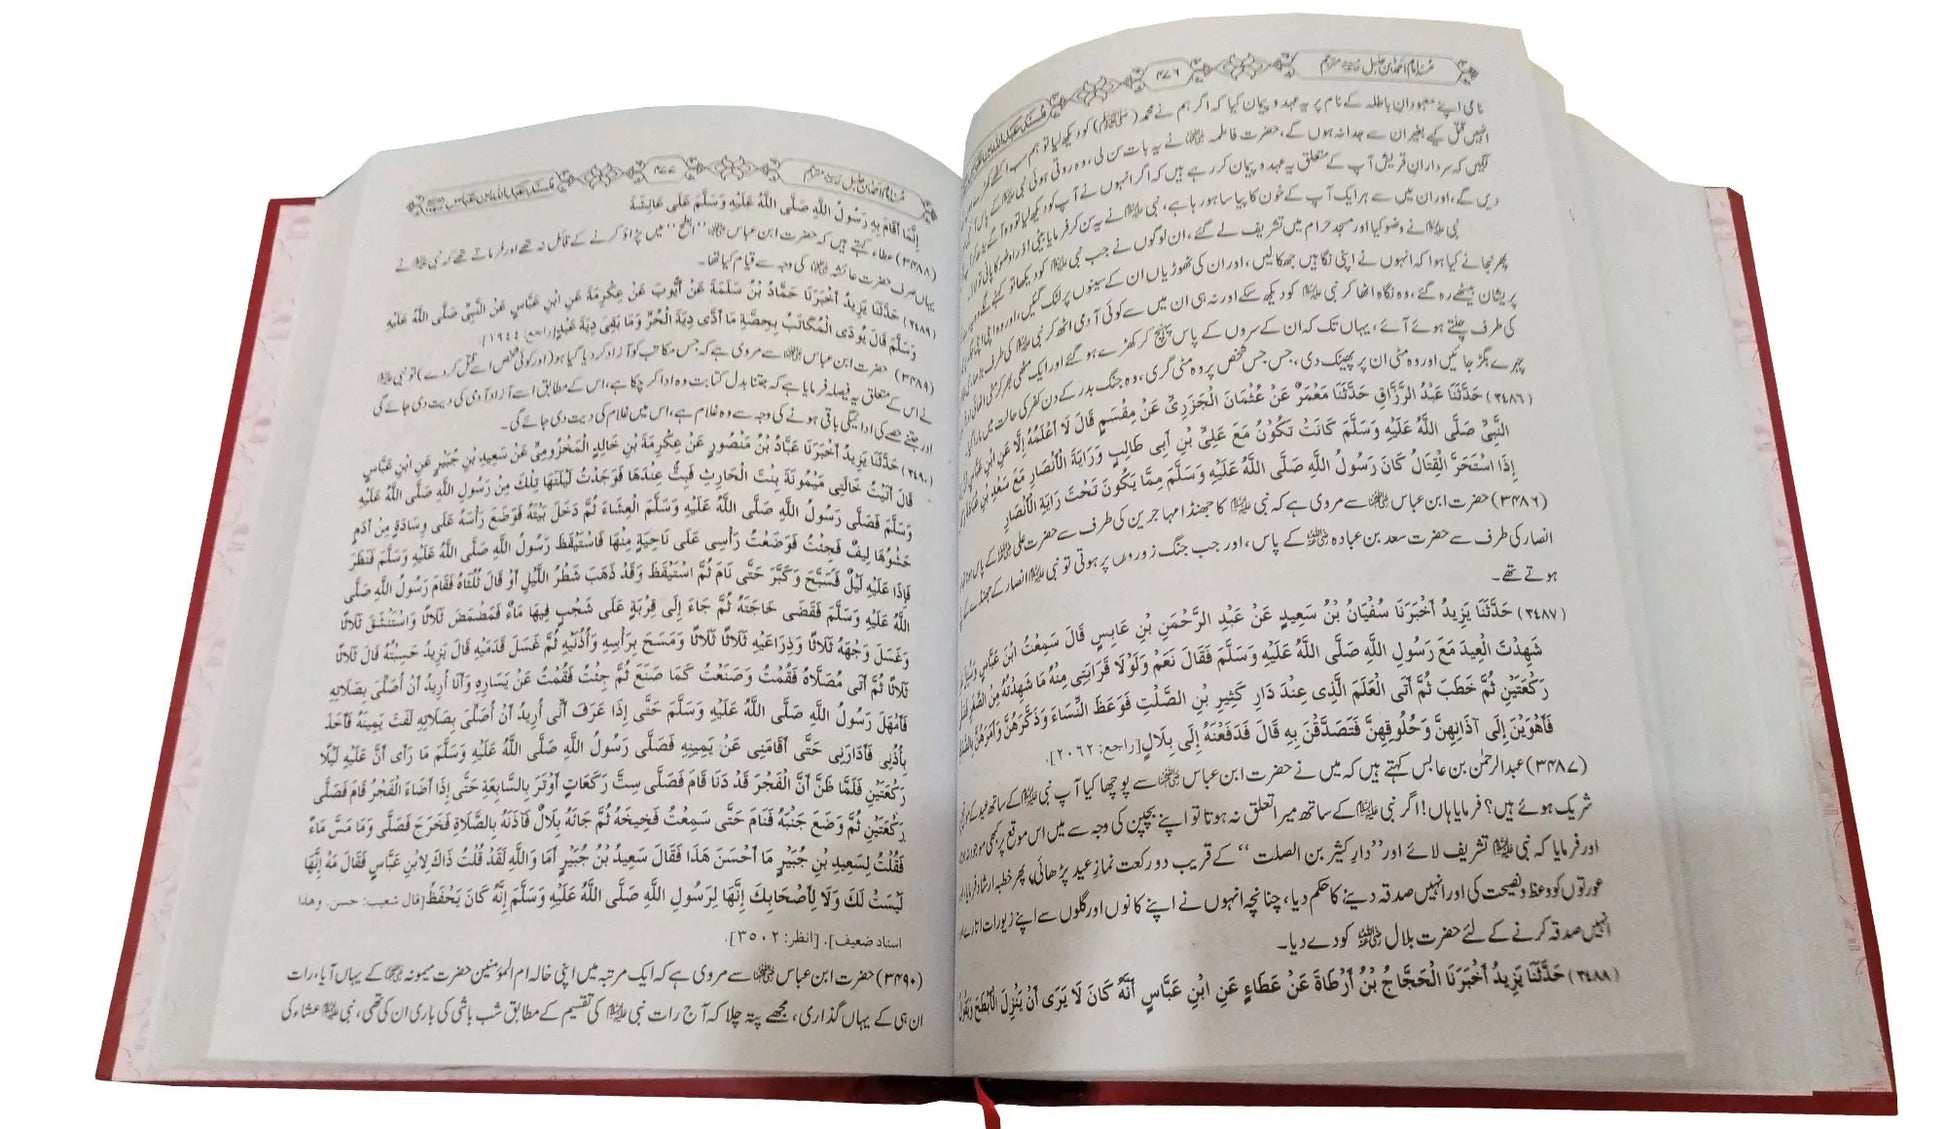 مُسنَد امام احمد بن حنبل مترجم ۴۷۶ مُسنَد عبد اللہ بن عباس
نامی اپنے معبودانِ باطلہ کے نام پر یہ عہد و پیمان کیا کہ اگر ہم نے محمد (ﷺ) کو دیکھ لیا تو ہم سب اکٹھے کھڑے
انہیں قتل کیے بغیر ان سے جدا نہ ہوں گے، حضرت فاطمہ نے یہ بات سن لی، وہ روتی ہوئی نبی
لگیں کہ سردارانِ قریش آپ کے متعلق یہ عہد و پیمان کر رہے ہیں کہ اگر انہوں نے آپ کو دیکھ لیا تو وہ آگے بڑھ کر
دیں گے، اور ان میں سے ہر ایک آپ کے خون کا پیاسا ہو رہا ہے، نبی نے یہ سن کر فرمایا بیٹی! ذرا وضو کا پانی تو لاؤ،
نبی نے وضو کیا اور مسجد حرام میں تشریف لے گئے، ان لوگوں نے جب نبی کو دیکھا تو کہنے لگے وہ
پھر نجانے کیا ہوا کہ انہوں نے اپنی نگاہیں جھکا لیں، اور ان کی ٹھوڑیاں ان کے سینوں پر لٹک گئیں، اور وہ اپنی اپنی
پریشان بیٹھے رہ گئے، وہ نگاہ اٹھا کر نبی کو دیکھ سکے اور نہ ہی ان میں سے کوئی آدمی اٹھ کر نبی کی طرف
کی طرف چلتے ہوئے آئے، یہاں تک کہ ان کے سروں کے پاس پہنچ کر کھڑے ہو گئے اور ایک مٹھی بھر کر مٹی اٹھائی
چہرے بگڑ جائیں اور وہ مٹی ان پر پھینک دی، جس جس شخص پر وہ مٹی گری، وہ جنگ بدر کے دن کفر کی حالت میں مارا گیا۔
(۳٤۸٦) حَدَّثَنَا عَبْدُ الرَّزَّاقِ حَدَّثَنَا مَعْمَرٌ عَنْ عُثْمَانَ الْجَزَرِيِّ عَنْ مِقْسَمٍ قَالَ لَا أَعْلَمُهُ إِلَّا عَنِ ابْنِ عَبَّاسٍ
النَّبِيِّ صَلَّى اللَّهُ عَلَيْهِ وَسَلَّمَ كَانَتْ تَكُونُ مَعَ عَلِيِّ بْنِ أَبِي طَالِبٍ وَرَايَةَ الْأَنْصَارِ مَعَ سَعْدِ بْنِ عُبَادَةَ
إِذَا اسْتَحَرَّ الْقِتَالُ كَانَ رَسُولُ اللَّهِ صَلَّى اللَّهُ عَلَيْهِ وَسَلَّمَ مِمَّا يَكُونُ تَحْتَ رَايَةِ الْأَنْصَارِ
(۳۴۸۶) حضرت ابن عباس سے مروی ہے کہ نبی کا جھنڈا مہاجرین کی طرف سے حضرت علی کے پاس
انصار کی طرف سے حضرت سعد بن عبادہ کے پاس، اور جب جنگ زوروں پر ہوتی تو نبی انصار کے جھنڈے
ہوتے تھے۔
(۳٤۸۷) حَدَّثَنَا يَزِيدُ أَخْبَرَنَا سُفْيَانُ بْنُ سَعِيدٍ عَنْ عَبْدِ الرَّحْمَنِ بْنِ عَابِسٍ قَالَ سَمِعْتُ ابْنَ عَبَّاسٍ
شَهِدْتَ الْعِيدَ مَعَ رَسُولِ اللَّهِ صَلَّى اللَّهُ عَلَيْهِ وَسَلَّمَ فَقَالَ نَعَمْ وَلَوْلَا قَرَابَتِي مِنْهُ مَا شَهِدْتُهُ مِنَ الصِّغَرِ
رَكْعَتَيْنِ ثُمَّ خَطَبَ ثُمَّ أَتَى الْعَلَمَ الَّذِي عِنْدَ دَارِ كَثِيرِ بْنِ الصَّلْتِ فَوَعَظَ النِّسَاءَ وَذَكَّرَهُنَّ وَأَمَرَهُنَّ
فَأَهْوَيْنَ إِلَى آذَانِهِنَّ وَحُلُوقِهِنَّ فَتَصَدَّقْنَ بِهِ قَالَ فَدَفَعْنَهُ إِلَى بِلَالٍ [راجع: ۲۰٦۲].
(۳۴۸۷) عبدالرحمٰن بن عابس کہتے ہیں کہ میں نے حضرت ابن عباس سے پوچھا کیا آپ نبی کے ساتھ عید کے موقع پر
شریک ہوئے ہیں؟ فرمایا ہاں! اگر نبی کے ساتھ میرا تعلق نہ ہوتا تو اپنے بچپن کی وجہ سے میں اس موقع پر کبھی موجود نہ
اور فرمایا کہ نبی تشریف لائے اور ”دار کثیر بن الصلت“ کے قریب دو رکعت نماز عید پڑھائی، پھر خطبہ ارشاد فرمایا
عورتوں کو وعظ و نصیحت کی اور انہیں صدقہ دینے کا حکم دیا، چنانچہ انہوں نے اپنے کانوں اور گلوں سے اپنے زیورات اتارے
انہیں صدقہ کرنے کے لئے حضرت بلال کو دے دیا۔
(۳٤۸۸) حَدَّثَنَا يَزِيدُ أَخْبَرَنَا الْحَجَّاجُ بْنُ أَرْطَاةَ عَنْ عَطَاءٍ عَنِ ابْنِ عَبَّاسٍ أَنَّهُ كَانَ لَا يَرَى أَنْ يَنْزِلَ الْأَبْطَحَ وَيَقُولُ
مُسنَد امام احمد بن حنبل مترجم ۴۷۷ مُسنَد عبد اللہ بن عباس
إِنَّمَا أَقَامَ بِهِ رَسُولُ اللَّهِ صَلَّى اللَّهُ عَلَيْهِ وَسَلَّمَ عَلَى عَائِشَةَ
(۳۴۸۸) عطاء کہتے ہیں کہ حضرت ابن عباس ”ابطح“ میں پڑاؤ کرنے کے قائل نہ تھے اور فرماتے تھے کہ نبی نے
یہاں صرف حضرت عائشہ کی وجہ سے قیام کیا تھا۔
(۳٤۸۹) حَدَّثَنَا يَزِيدُ أَخْبَرَنَا حَمَّادُ بْنُ سَلَمَةَ عَنْ أَيُّوبَ عَنْ عِكْرِمَةَ عَنِ ابْنِ عَبَّاسٍ عَنِ النَّبِيِّ صَلَّى اللَّهُ عَلَيْهِ
وَسَلَّمَ قَالَ يُودَى الْمُكَاتَبُ بِحِصَّةِ مَا أَدَّى دِيَةَ الْحُرِّ وَمَا بَقِيَ دِيَةَ عَبْدٍ [راجع: ۱۹٤٤].
(۳۴۸۹) حضرت ابن عباس سے مروی ہے کہ جس مکاتب کو آزاد کر دیا گیا ہو (اور کوئی شخص اسے قتل کر دے) تو نبی
نے اس کے متعلق یہ فیصلہ فرمایا ہے کہ جتنا بدل کتابت وہ ادا کر چکا ہے، اس کے مطابق اسے آزاد آدمی کی دیت دی جائے گی
اور جتنے حصے کی ادائیگی باقی ہونے کی وجہ سے وہ غلام ہے، اس میں غلام کی دیت دی جائے گی۔
(۳٤۹۰) حَدَّثَنَا يَزِيدُ أَخْبَرَنَا عَبَّادُ بْنُ مَنْصُورٍ عَنْ عِكْرِمَةَ بْنِ خَالِدٍ الْمَخْزُومِيِّ عَنْ سَعِيدِ بْنِ جُبَيْرٍ عَنِ ابْنِ عَبَّاسٍ
قَالَ أَتَيْتُ خَالَتِي مَيْمُونَةَ بِنْتَ الْحَارِثِ فَبِتُّ عِنْدَهَا فَوَجَدْتُ لَيْلَتَهَا تِلْكَ مِنْ رَسُولِ اللَّهِ صَلَّى اللَّهُ عَلَيْهِ
وَسَلَّمَ فَصَلَّى رَسُولُ اللَّهِ صَلَّى اللَّهُ عَلَيْهِ وَسَلَّمَ الْعِشَاءَ ثُمَّ دَخَلَ بَيْتَهُ فَوَضَعَ رَأْسَهُ عَلَى وِسَادَةٍ مِنْ أَدَمٍ
حَشْوُهَا لِيفٌ فَجِئْتُ فَوَضَعْتُ رَأْسِي عَلَى نَاحِيَةٍ مِنْهَا فَاسْتَيْقَظَ رَسُولُ اللَّهِ صَلَّى اللَّهُ عَلَيْهِ وَسَلَّمَ فَنَظَرَ
فَإِذَا عَلَيْهِ لَيْلٌ فَسَبَّحَ وَكَبَّرَ حَتَّى نَامَ ثُمَّ اسْتَيْقَظَ وَقَدْ ذَهَبَ شَطْرُ اللَّيْلِ أَوْ قَالَ ثُلُثَاهُ فَقَامَ رَسُولُ اللَّهِ صَلَّى
اللَّهُ عَلَيْهِ وَسَلَّمَ فَقَضَى حَاجَتَهُ ثُمَّ جَاءَ إِلَى قِرْبَةٍ عَلَى شَجْبٍ فِيهَا مَاءٌ فَمَضْمَضَ ثَلَاثًا وَاسْتَنْشَقَ ثَلَاثًا
وَغَسَلَ وَجْهَهُ ثَلَاثًا وَذِرَاعَيْهِ ثَلَاثًا ثَلَاثًا وَمَسَحَ بِرَأْسِهِ وَأُذُنَيْهِ ثُمَّ غَسَلَ قَدَمَيْهِ قَالَ يَزِيدُ حَسِبْتُهُ قَالَ ثَلَاثًا
ثَلَاثًا ثُمَّ أَتَى مُصَلَّاهُ فَقُمْتُ وَصَنَعْتُ كَمَا صَنَعَ ثُمَّ جِئْتُ فَقُمْتُ عَنْ يَسَارِهِ وَأَنَا أُرِيدُ أَنْ أُصَلِّيَ بِصَلَاتِهِ
فَأَمْهَلَ رَسُولُ اللَّهِ صَلَّى اللَّهُ عَلَيْهِ وَسَلَّمَ حَتَّى إِذَا عَرَفَ أَنِّي أُرِيدُ أَنْ أُصَلِّيَ بِصَلَاتِهِ لَفَتَ يَمِينَهُ فَأَخَذَ
بِأُذُنِي فَأَدَارَنِي حَتَّى أَقَامَنِي عَنْ يَمِينِهِ فَصَلَّى رَسُولُ اللَّهِ صَلَّى اللَّهُ عَلَيْهِ وَسَلَّمَ مَا رَأَى أَنَّ عَلَيْهِ لَيْلًا
رَكْعَتَيْنِ فَلَمَّا ظَنَّ أَنَّ الْفَجْرَ قَدْ دَنَا قَامَ فَصَلَّى سِتَّ رَكَعَاتٍ أَوْتَرَ بِالسَّابِعَةِ حَتَّى إِذَا أَضَاءَ الْفَجْرُ قَامَ فَصَلَّى
رَكْعَتَيْنِ ثُمَّ وَضَعَ جَنْبَهُ فَنَامَ حَتَّى سَمِعْتُ فَخِيخَهُ ثُمَّ جَائَهُ بِلَالٌ فَآذَنَهُ بِالصَّلَاةِ فَخَرَجَ فَصَلَّى وَمَا مَسَّ مَاءً
فَقُلْتُ لِسَعِيدِ بْنِ جُبَيْرٍ مَا أَحْسَنَ هَذَا فَقَالَ سَعِيدُ بْنُ جُبَيْرٍ أَمَا وَاللَّهِ لَقَدْ قُلْتُ ذَاكَ لِابْنِ عَبَّاسٍ فَقَالَ مَهْ إِنَّهَا
لَيْسَتْ لَكَ وَلَا لِأَصْحَابِكَ إِنَّهَا لِرَسُولِ اللَّهِ صَلَّى اللَّهُ عَلَيْهِ وَسَلَّمَ إِنَّهُ كَانَ يَحْفَظُ [قال شعيب: حسن. وهذا
اسناد ضعيف]. [انظر: ۳٥۰۲].
(۳۴۹۰) حضرت ابن عباس سے مروی ہے کہ ایک مرتبہ میں اپنی خالہ ام المؤمنین حضرت میمونہ کے یہاں آیا، رات
ان ہی کے یہاں گذاری، مجھے پتہ چلا کہ آج رات نبی کی تقسیم کے مطابق شب باشی کی باری ان کی تھی، نبی عشاء کی